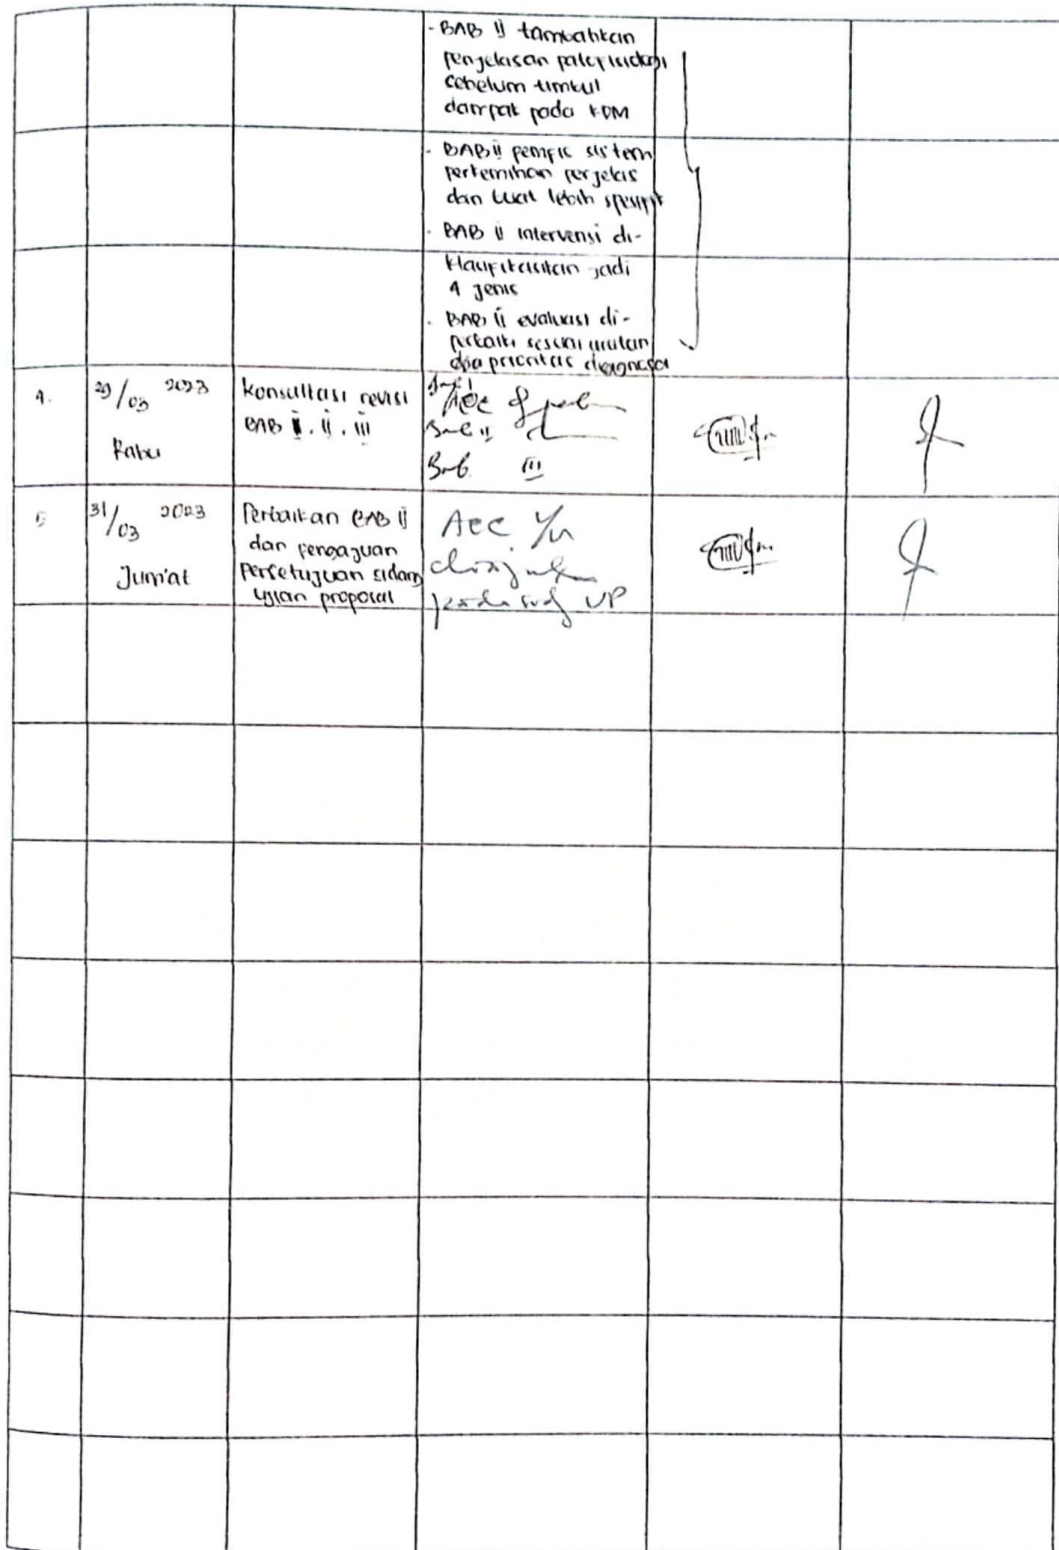 - BAB ii tambahkan
penjelasan patofisiologi
sebelum timbul
dampak pada KDM
- BAB ii pemfis sistem
perkemihan perjelas
dan buat lebih spesifik
- BAB ii intervensi di-
klasifikasikan jadi
4 jenis
- BAB ii evaluasi di-
perbaiki sesuai urutan
prioritas diagnosa
4.
29/03 2023
Rabu
Konsultasi revisi
BAB i. ii. iii
Acc
Bab ii
Bab iii
5
31/03 2023
Jum'at
Perbaikan BAB ii
dan pengajuan
persetujuan sidang
ujian proposal
Acc
UP